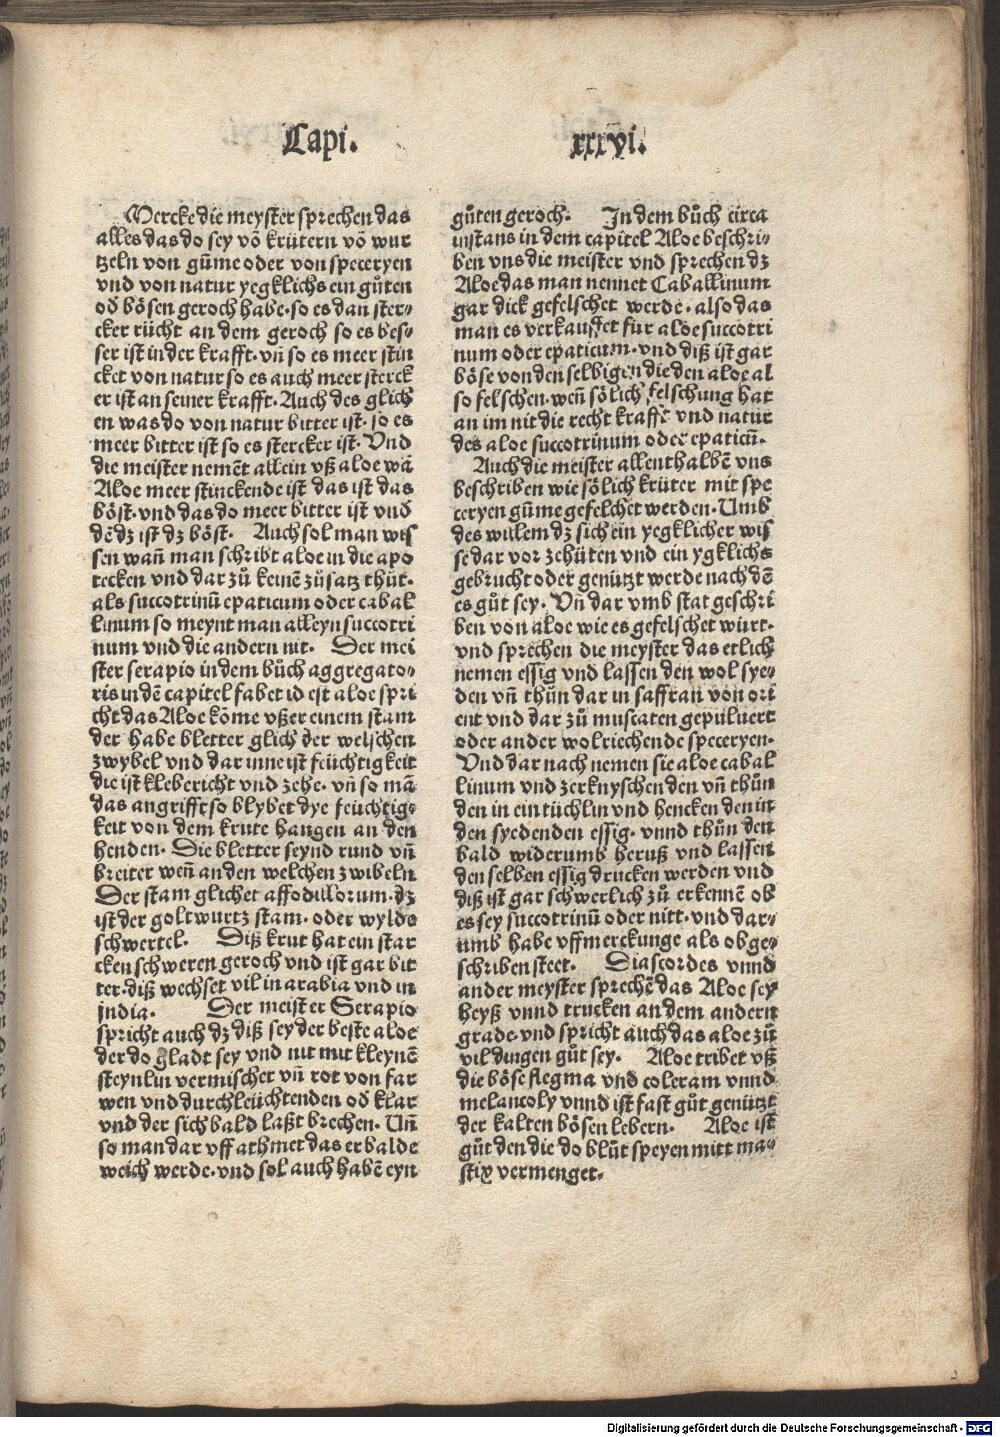 Capi. xxxvi.
Mercke die meyster sprechen das
alles das do sey võ krütern võ wur
tzeln von gũme oder von speceryen
vnd von natur yegklichs ein gůten
od̕ bösen geroch habe. so es dan ster⸗
cker rücht an dem geroch so es bes⸗
ser ist in der krafft. vñ so es meer stin
cket von natur so es auch meer sterck
er ist an seiner krafft. Auch des glich
en was do von natur bitter ist. so es
meer bitter ist so es stercker ist. Vnd
die meister nemẽt allein vß aloe wã
Aloe meer stinckende ist das ist das
böst. vnd das do meer bitter ist vnd̕
dẽ dz ist dz böst. Auch sol man wis
sen wañ man schribt aloe in die apo
tecken vnd dar zů keinẽ zůsatz thůt.
als succotrinũ epaticum oder cabal
linum so meynt man alleyn succotri
num vnd die andern nit. Der mei
ster serapio in dem bůch aggregato⸗
ris in dẽ capitel fabet id est aloe spri
cht das Aloe kõme vßer einem stam
der habe bletter glich der welschen
zwybel vnd dar inne ist feüchtigkeit
die ist klebericht vnd zehe. vñ so mã
das angrifft so blybet dye feüchtig⸗
keit von dem krute hangen an den
henden. Die bletter seynd rund vñ
breiter weñ an den welchen zwibeln
Der stam glichet affodillorum. dz
ist der goltwurtz stam. oder wylde
schwertel. Diß krut hat ein star
cken schweren geroch vnd ist gar bit
ter. diß wechset vil in arabia vnd in
jndia. Der meister Serapio
spricht auch dz diß sey der beste aloe
der do gladt sey vnd nit mit kleynẽ
steynlin vermischet vñ rot von far
wen vnd durchleüchtenden od̕ klar
vnd der sich bald laßt brechen. Uñ
so man dar vff athmet das er balde
weich werde. vnd sol auch habẽ eyn
gůten geroch. In dem bůch circa
instans in dem capitel Aloe beschri⸗
ben vns die meister vnd sprechen dz
Aloe das man nennet Caballinum
gar dick gefelschet werde. also das
man es verkauffet für aloe succotri
num oder epaticum. vnd diß ist gar
böse von den selbigen die den aloe al
so felschen. weñ sölich felschung hat
an im nit die recht krafft vnd natur
des aloe succotrinum oder epaticũ.
Auch die meister allenthalbẽ vns
beschriben wie sölich krüter mit spe
ceryen gũme gefelchet werden. Umb
des willem dz sich ein yegklicher wis
se dar vor zehüten vnd ein ygklichs
gebrucht oder genützt werde nach dẽ
es gůt sey. Vñ dar vmb stat geschri
ben von aloe wie es gefelschet würt.
vnd sprechen die meyster das etlich
nemen essig vnd lassen den wol sye⸗
den vñ thůn dar in saffran von ori
ent vnd dar zů muscaten gepuluert
oder ander wolriechende speceryen.
Vnd dar nach nemen sie aloe cabal
linum vnd zerknyschen den vñ thůn
den in ein tüchlin vnd hencken den in
den syedenden essig. vnnd thůn den
bald widerumb heruß vnd lassen
den selben essig drucken werden vnd
diß ist gar schwerlich zů erkennẽ ob
es sey succotrinũ oder nitt. vnd dar⸗
umb habe vffmerckunge als obge⸗
schriben steet. Diascordes vnnd
ander meyster sprechẽ das Aloe sey
heyß vnnd trucken an dem andern
grade. vnd spricht auch das aloe zů
vil dingen gůt sey. Aloe tribet vß
die böse flegma vnd coleram vnnd
melancoly vnnd ist fast gůt genützt
der kalten bösen lebern. Aloe ist
gůt den die do blůt speyen mitt ma⸗
stix vermenget.
Digitalisierung gefördert durch die Deutsche Forschungsgemeinschaft - DFG